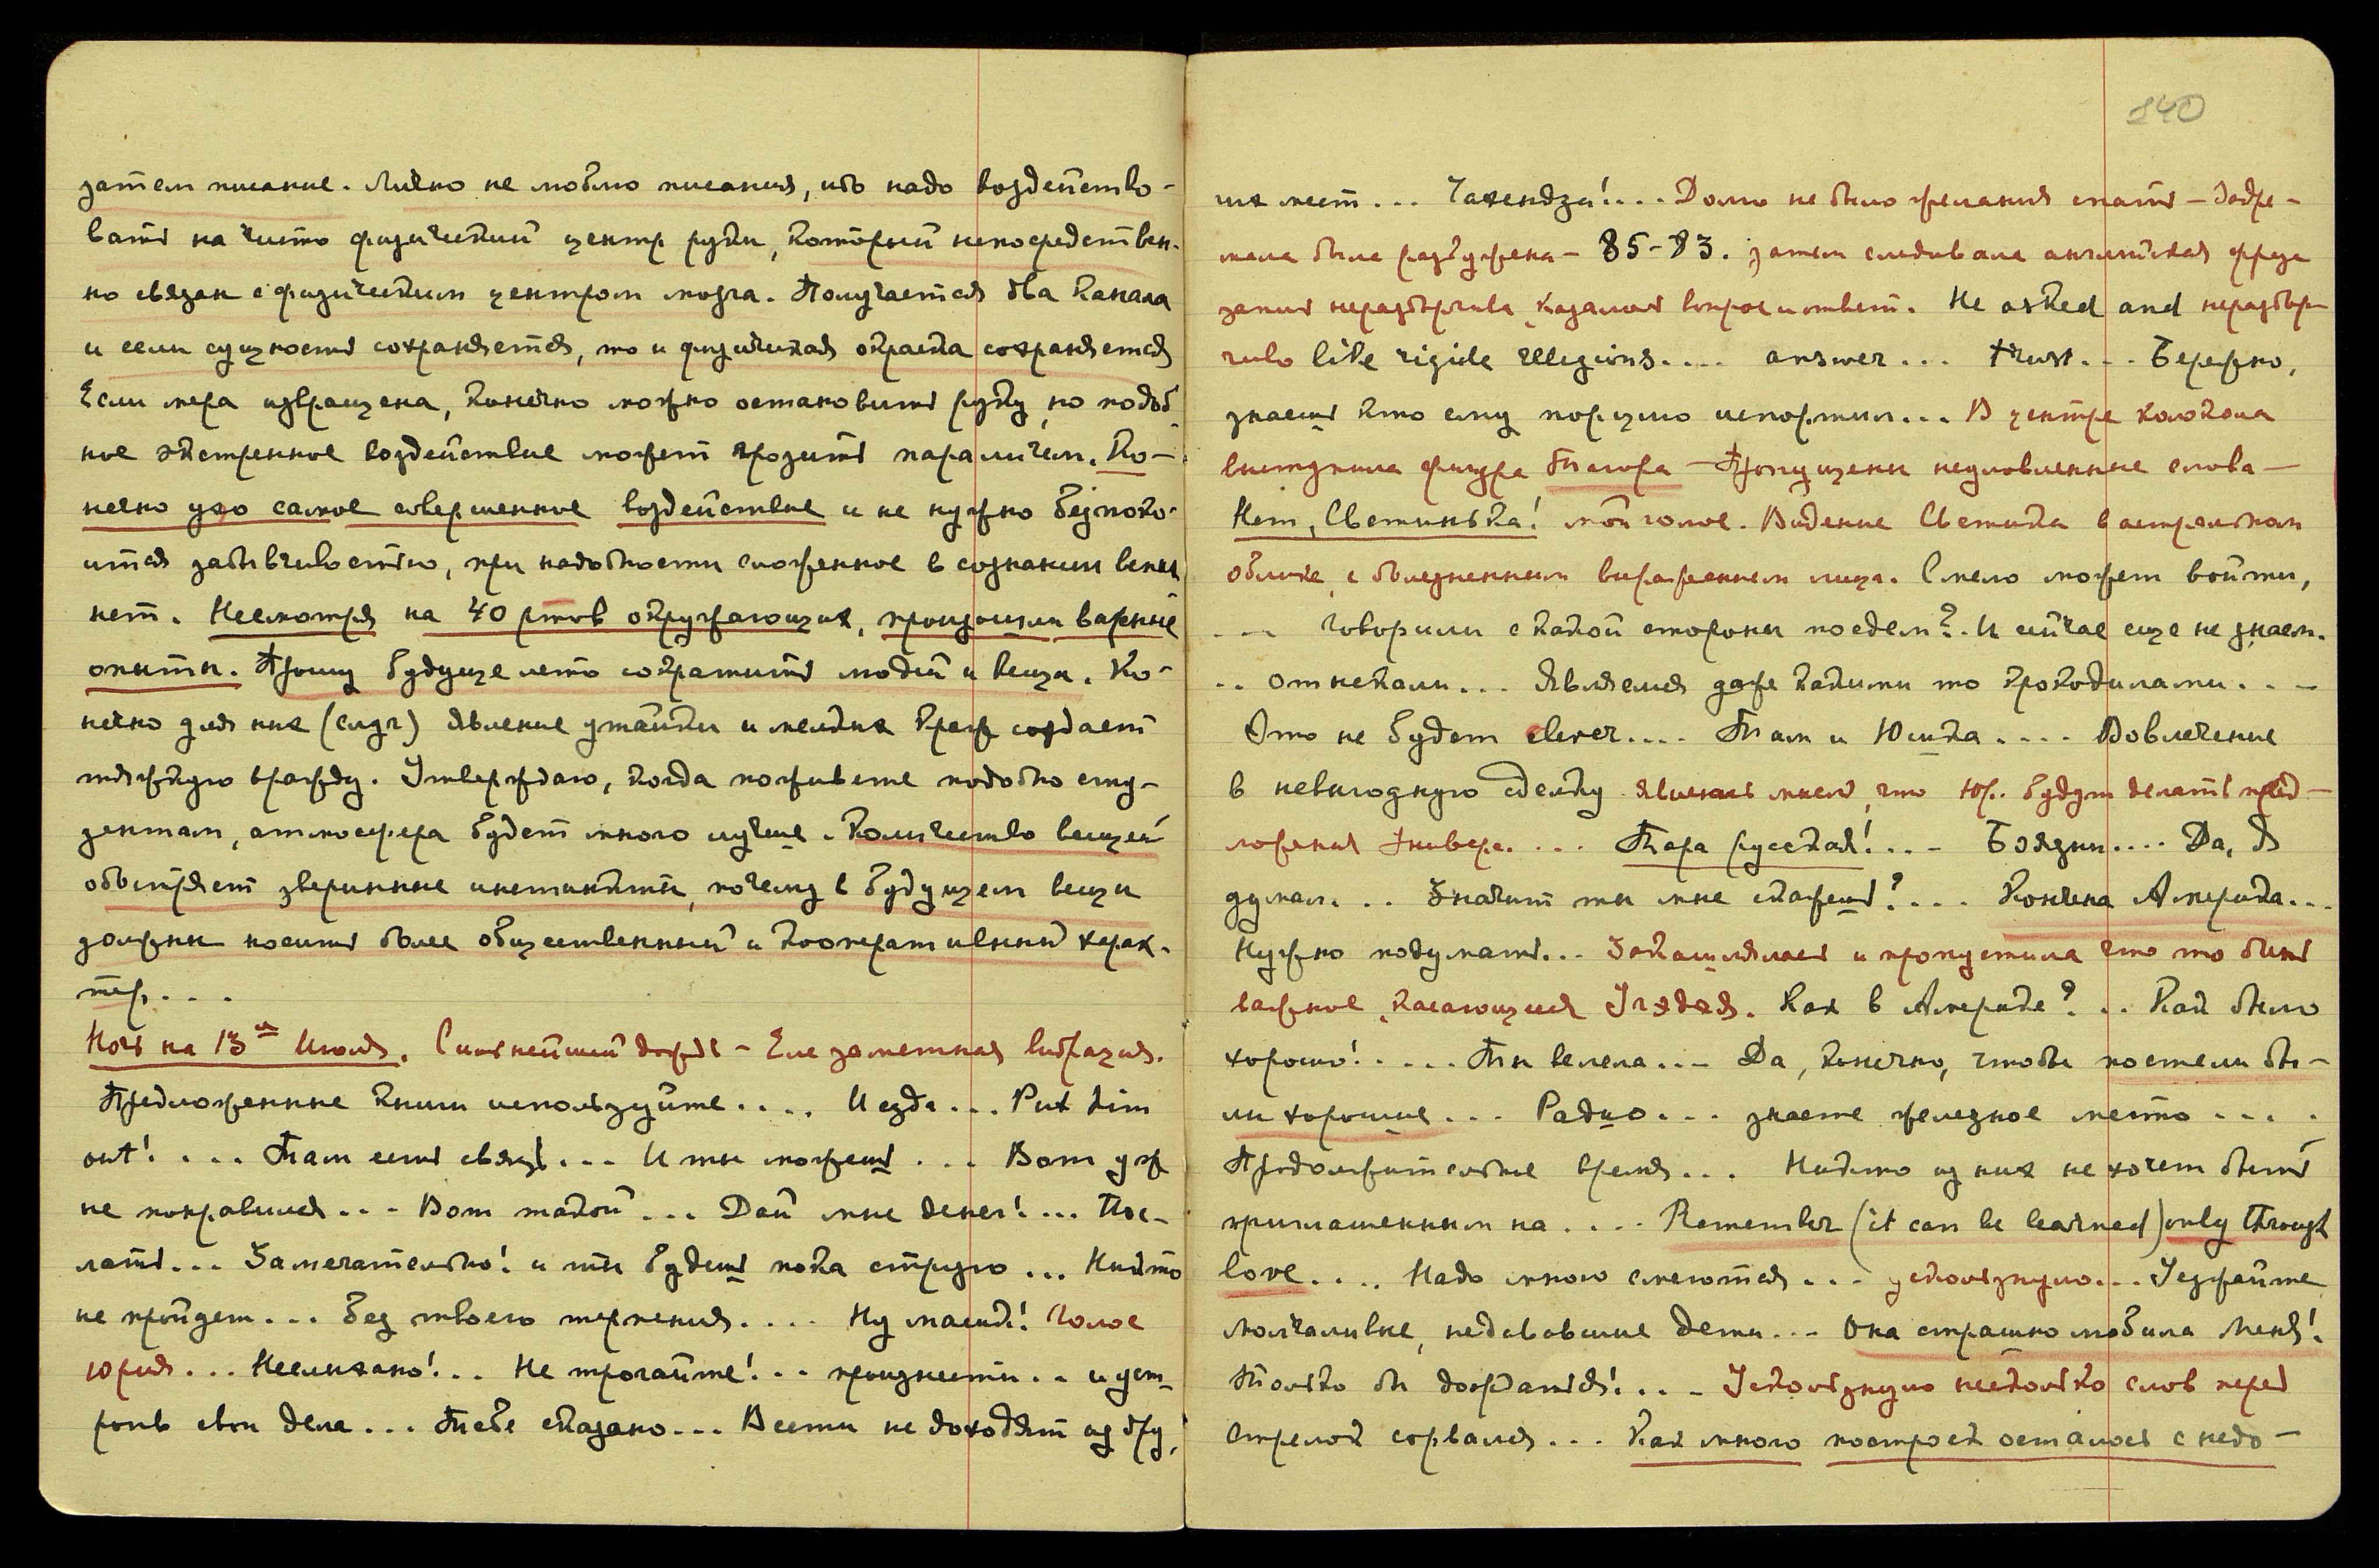 затем писание. Лично не люблю писания, ибо надо воздейство-
вать на чисто физический центр руки, который непосредствен-
но связан с физическим центром мозга. Получается два канала
и если сущность сохраняется, то и физическая окраска сохраняется
Если мера извращена, конечно можно остановить руку, но подоб
ное экстренное воздействие может грозить параличем. Ко-
нечно ухо самое совершенное воздействие и не нужно безпоко-
иться забывчивостью, при надобности сложенное в сознании вспых
нет. Несмотря на 40 ртов окружающих, произошли важные
опыты. Прошу будущее лето сократить людей и вещи. Ко-
нечно для них (слуг) явление утайки и мелких краж создает
тяжкую вражду. Утверждаю, когда поживете подобно сту-
дентам, атмосфера будет много лучше. Количество вещей
обостряет звериные инстинкты, почему в будущем вещи
должны носить более общественный и кооперативный харак-
тер...
Ночь на 13ое Июля. Сильнейший дождь - Еле заметная вибрация.
Предложенные книги используйте.... Иезда... Put him
out! ... Там есть связь... И ты можешь ... Вот уж
не понравился... Вот такой ... Дай мне денег! ... Пос-
лать... Замечательно! и ты будешь пока струго ... Никто
не пройдет... Без твоего терпения.... Ну Голос
Юрия... Неслыхано!.. Не трогайте!... произнести.. и уст-
роив свои дела... Тебе сказано... Вести не доходят из дру,
гих мест... Чахендзы!.... Долго не было желания спать - Задре-
мала была разбужена - 85-83. затем следовала английская фраза
запись неразборчива, казалось вопрос и ответ. He asked and неразбор-
чиво like rigide religions.... answer... trust... Бережно,
знаешь кто ему порцию испортил... В центре колокола
выступила фигура Тагора - Пропущены неуловленные слова -
Нет, Светинька! мой голос. Видение Светика в астральном
облике, с болезненным выражением лица. Смело может войти,
... Говорили с какой стороны поедем?. И сейчас еще не знаем.
.. от некали... Являемся даже какими то крокодилами...-
Это не будет clever.... Там и Юшка.... Вовлечение
в невыгодную сделку явилась мысль, что Юр. будут делать пред-
ложения Универс.... Тара русская!... Боязни.... Да, я
думал... Значит ты мне скажешь?.... Кончена Америка...
Нужно подумать... Закашлялась и пропустила что то быть
важное, касающееся Как в Америке?... Как было
хорошо!..... Ты велела... Да, конечно, чтобы постели бы-
ли хорошие... Радио... знаете железное место ....
Продолжительное время... Никто из них не хочет быть
приглашенным на .... Remember (it can be learned) only through
love.... Надо много смеются... ускользнуло... Уезжайте
молчаливые, недовавшие дети... Она страшно любила Меня!
Только бы дождаться!... Ускользнуло несколько слов перед
Стрелок сорвался... Как много построек осталось с недо-